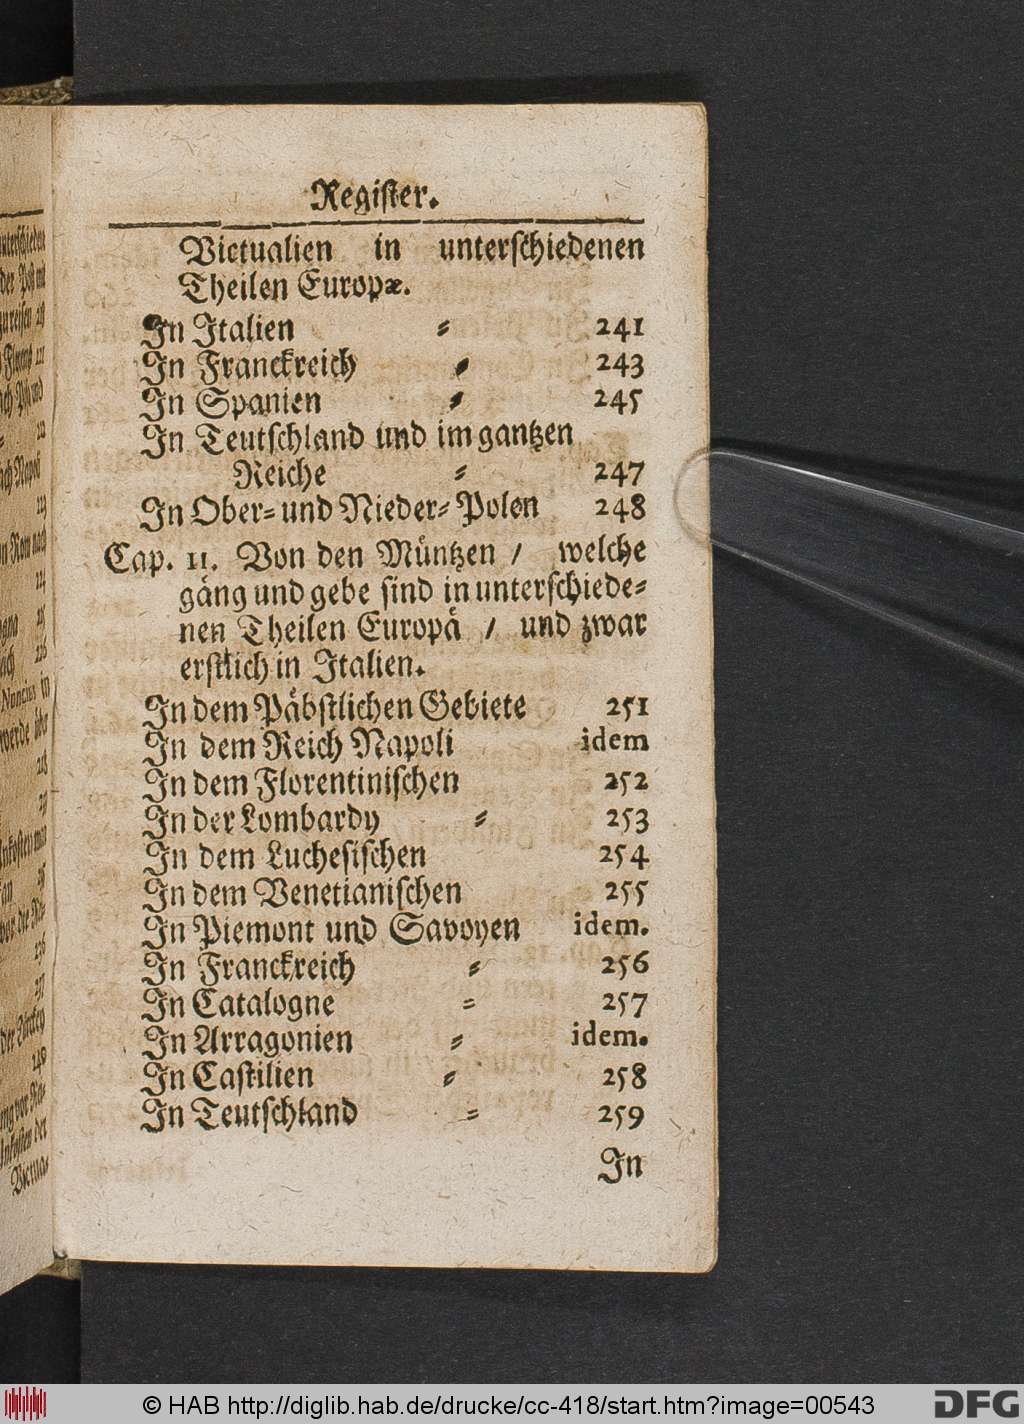 Register.
Victualien in unterschiedenen
Theilen Europæ.
In Italien ⸗ 241
In Franckreich ⸗ 243
In Spanien ⸗ 245
In Teutschland und im gantzen
Reiche ⸗ 247
In Ober⸗ und Nieder⸗Polen 248
Cap. 11. Von den Müntzen / welche
gäng und gebe sind in unterschiede⸗
nen Theilen Europä / und zwar
erstlich in Italien.
In dem Päbstlichen Gebiete 251
In dem Reich Napoli idem
In dem Florentinischen 252
In der Lombardy ⸗ 253
In dem Luchesischen 254
In dem Venetianischen 255
In Piemont und Savoyen idem.
In Franckreich ⸗ 256
In Catalogne ⸗ 257
In Arragonien ⸗ idem.
In Castilien ⸗ 258
In Teutschland ⸗ 259
In
© HAB http://diglib.hab.de/drucke/cc-418/start.htm?image=00543
DFG